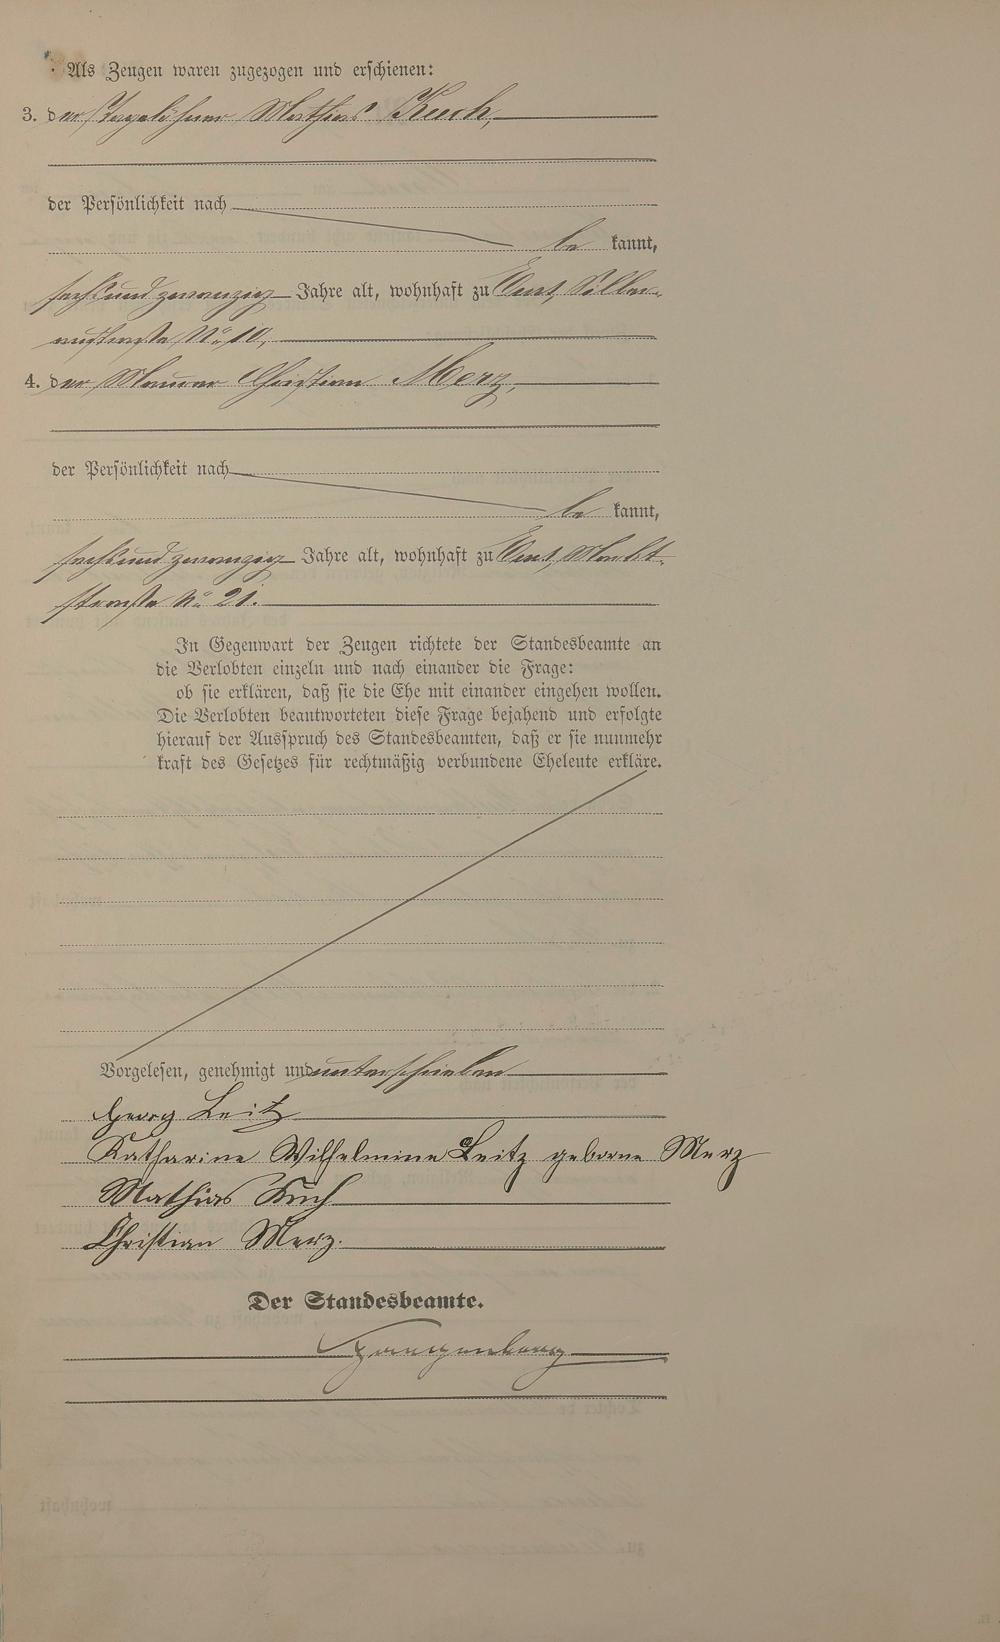 Als Zeugen waren zugezogen und erschienen:
3. der Tagelöhner Mathias Kuch,
der Persönlichkeit nach
be kannt,
sechsundzwanzig Jahre alt, wohnhaft zu
No 10,
4. der Maurer Christian Merz,
der Persönlichkeit nach
be kannt,
sechsundzwanzig Jahre alt, wohnhaft zu
straße No 21.
In Gegenwart der Zeugen richtete der Standesbeamte an
die Verlobten einzeln und nach einander die Frage:
ob sie erklären, daß sie die Ehe mit einander eingehen wollen.
Die Verlobten beantworteten diese Frage bejahend und erfolgte
hierauf der Ausspruch des Standesbeamten, daß er sie nunmehr
kraft des Gesetzes für rechtmäßig verbundene Eheleute erkläre.
Vorgelesen, genehmigt und unterschrieben
Georg Leitz
Katharine Wilhelmine Leitz geborne Merz
Mathias Kuch
Christian Merz.
Der Standesbeamte.